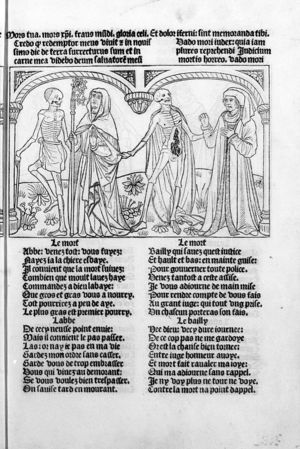 Mors tua. mors xp̄i. fraus mūdi. gloria celi. Et dolor īferni: sint memoranda tibi.
Credo q̄ redemptor meus viuit ⁊ in nouis
simo die de terra surrecturus sum et in
carne mea videbo deum saluatorē meū
Vado mori iudex: quia iam
plures reprehendi Iudicium
mortis horreo. vado mori
Le mort
Abbe: venez tost: vous fuyez:
Nayez ia la chiere esbaye.
Il conuient que la mort suiuez:
Combien que moult lauez haye
Commandez a dieu labaye:
Que gros et gras vous a nourry.
Tost pourrirez a peu de aye.
Le plus gras est premier pourry.
Labbe
De cecy neusse point enuie:
Mais il conuient le pas passer.
Las: or nay ie pas en ma vie
Garde mon ordre sans casser.
Garde vous de trop embrasser
Vous qui viuez au demorant:
Se vous voulez bien trespasser.
On sauise tard en mourant.
Le mort
Bailly qui sauez quest iustice
Et hault et bas: en mainte guise:
Pour gouuerner toute police.
Venez tantost a ceste assise.
Je vous adiourne de main mise
Pour rendre compte de vous fais
Au grant iuge: qui tout vng prise.
Vn chascun portera son fais.
Le bailly
Hee dieu: vecy dure iournee:
De ce cop pas ne me gardoye
Or est la chanse bien tornee:
Entre iuge honneur auoye.
Et mort fait raualer ma ioye:
Qui ma adiourne sans rappel.
Je ny voy plus ne tour ne voye.
Contre la mort na point dappel.